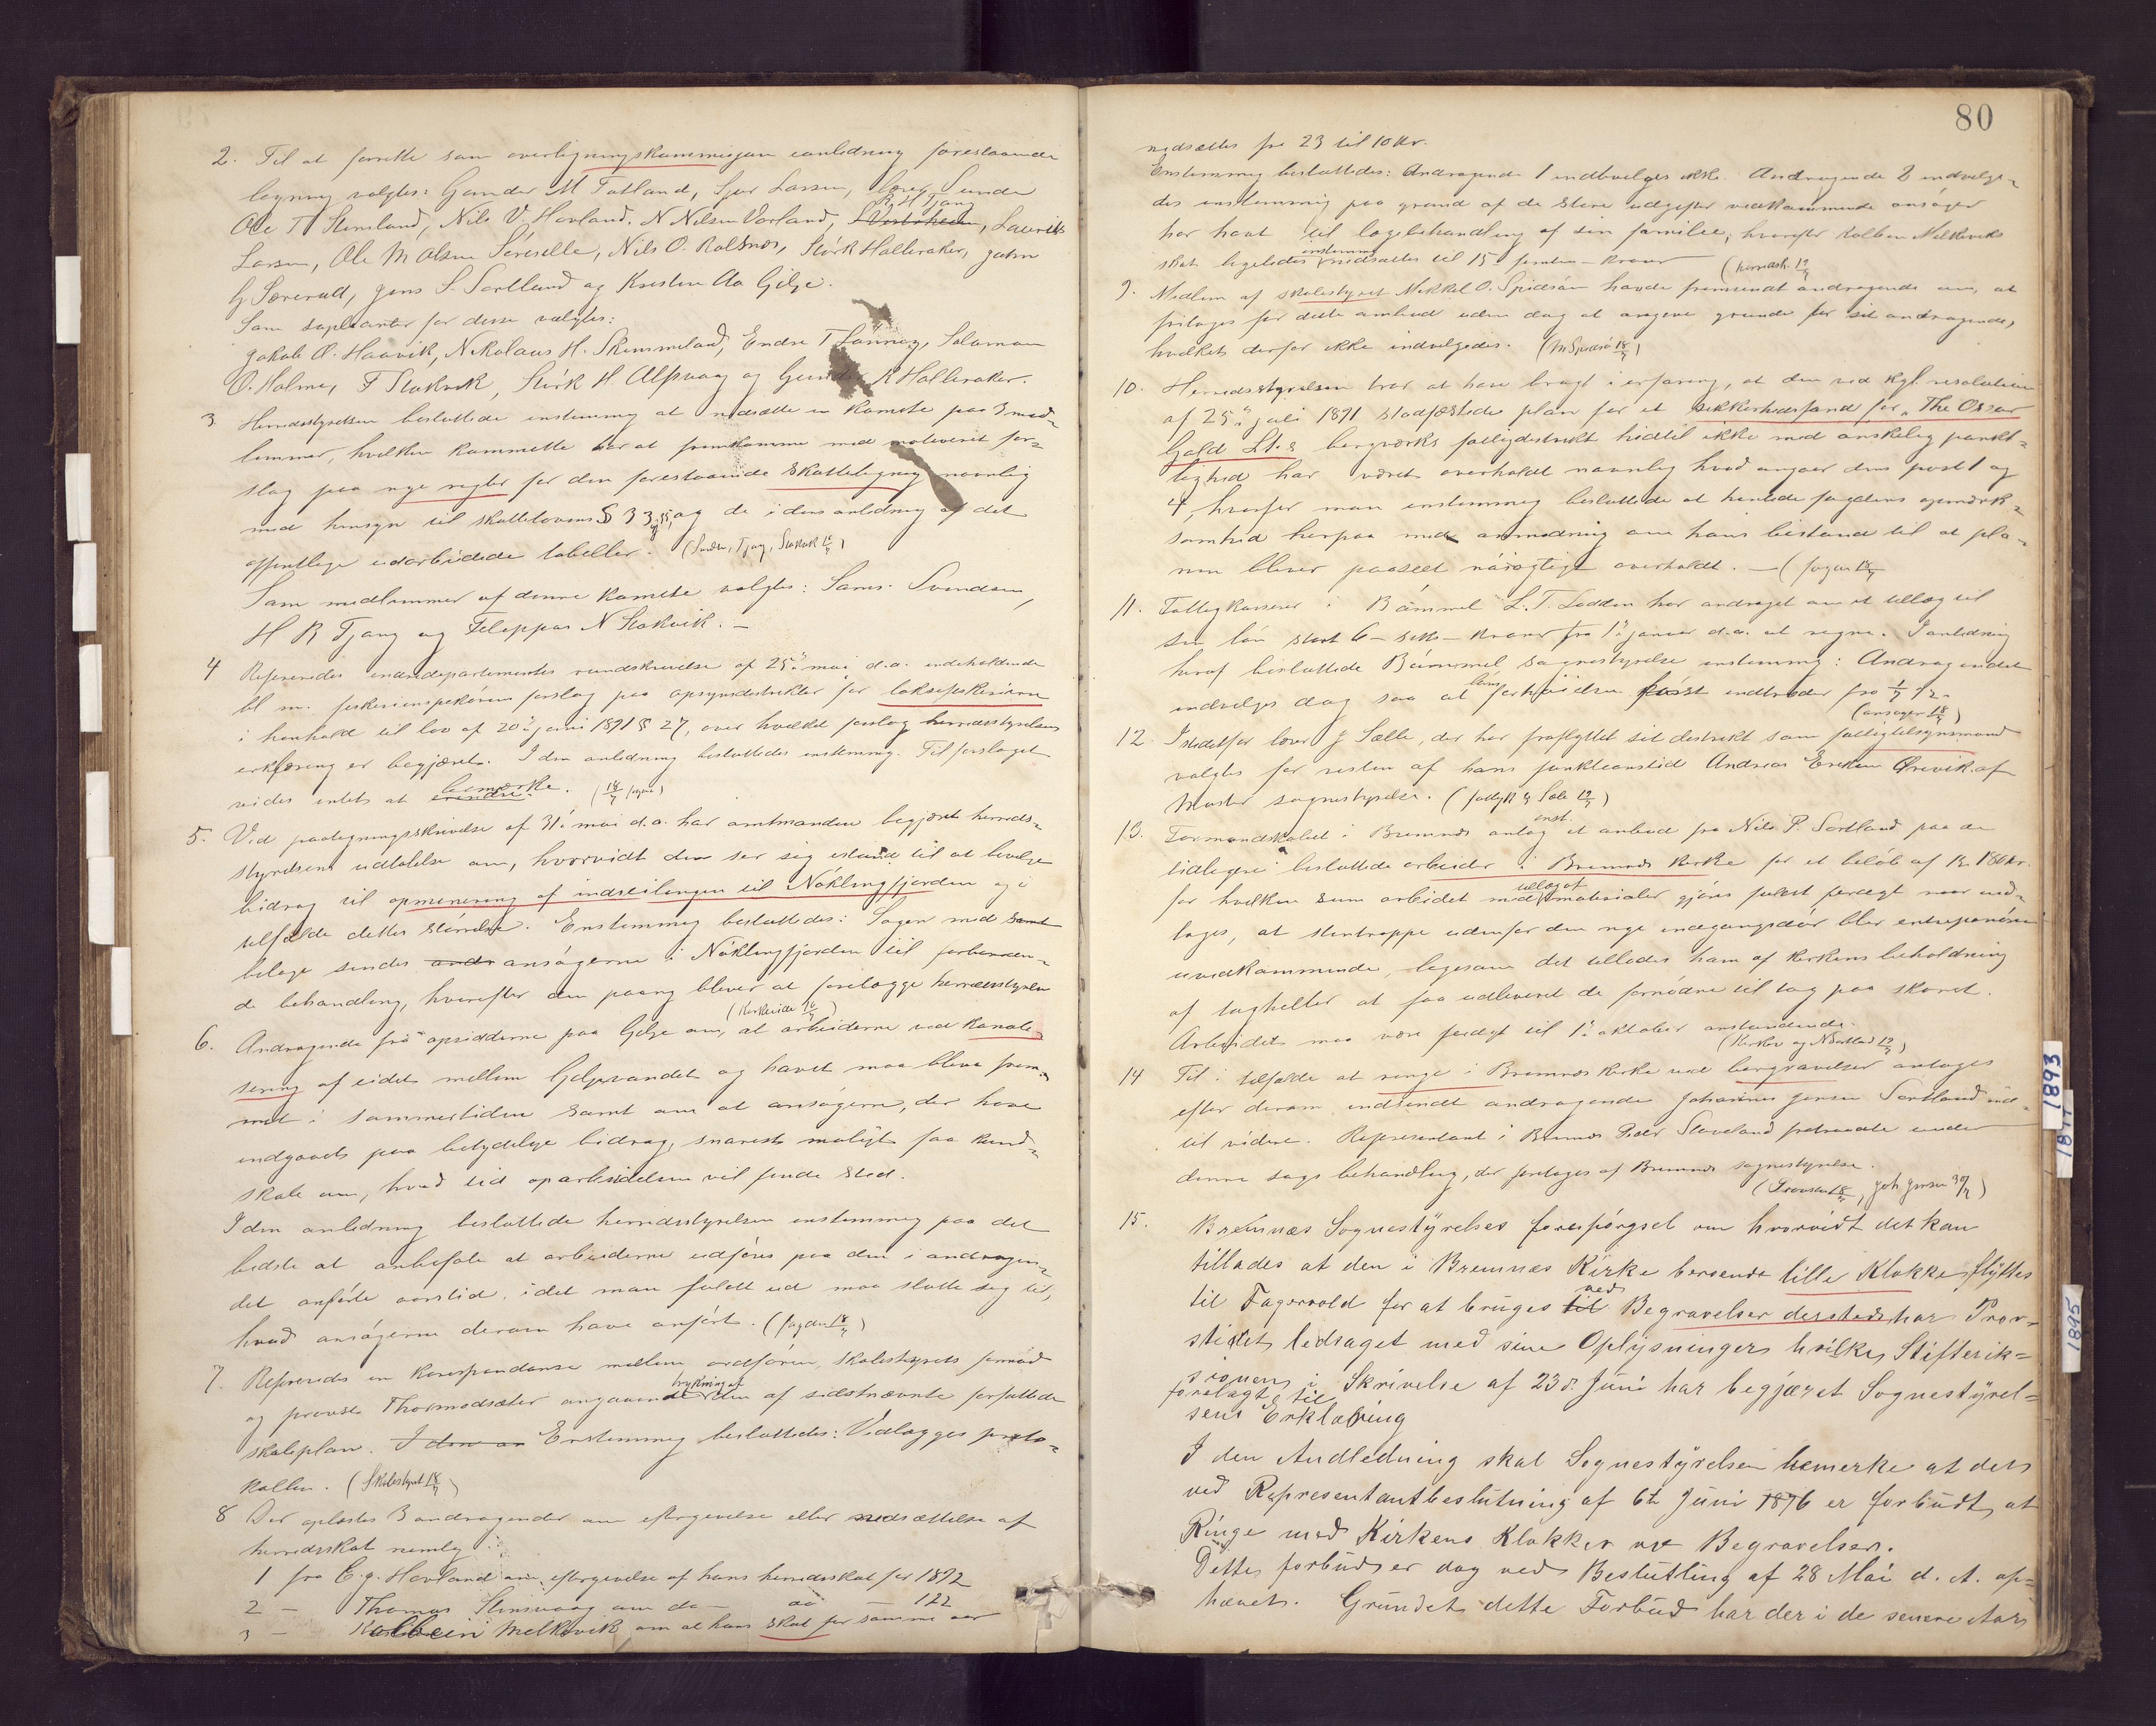 2. Til at forrette som overligningskommisjon i anledning forestaaende
ligning valgtes: Gunder M Totland, Sjur Larsen, Sunde
R H Tjong
Ole T Stensland, Nils V. Hovland, N Nilsen Vorland, Laurits
Larsen, Ole M Olsen Nils O. Rolsnes, Störk Halleraker, John
G. Særevold, Jens S. Sortland og Kristen Aa Gilje.
Som supleanter for disse valgtes:
Jakob O. Haavik, Nikolaus H. Skimmeland, Endre T Lönning, Salamon
O. Holme, F Stokvik, Störk H. Alfsvaag og Gunder R Halleraker.
3 Herredsstyrelsen besluttede enstemmig at nedsætte en komite paa 3 med-
lemmer, hvilken kommitte har at fremkomme med motiverit for-
slag paa nye regler for den forestaaende skatteligning navnlig
med hensyn til skattelovens § 33 og 35, og de i dens anledning af det
offentlige udarbeidede tabeller. (Svends, Tjong, Stokvik 18/7)
Som medlemmer af denne komite valgtes: Sams. Svendsen,
H R Tjong og Filippus N Stokvik. —
4 Refereredes indredepartementes rundskrivelse af 25de mai d.a. indeholdende
bl. m. fiskeriinspektörens forslag paa opsynsdistrikter for laksefiskerierne
i henhold til lov af 20de juni 1891 § 27, over hvilket forslag herredsstyrelsens
erklæring er begjæret. I den anledning besluttedes enstemmig. Til forslaget
vides intet at erindre bemærke. (18/7 fogden)
5. Ved paategningsskrivelse af 31. mai d.a. har amtmanden begjæret herreds-
styrelsens udtalelse om, hvorvidt den ser sig istand til at bevilge
bidrag til opmerering af indseilingen til Nöklingfjorden og i
tilfælde dettes störrelse. Enstemmig besluttedes: Sagen med samt
bilage sendes andr ansögerne i Nöklingfjorden til forberedend-
de behandling, hvorefter den paany bliver at forelægge herredsstyrelsen
(Kirkeeide 18/7)
6. Andragende fra opsidderne paa Gilje om, at arbeiderne ved kanali-
sering af eidet mellem Giljevandet og havet maa blive frem-
met i sommertiden samt om at ansögerne, der have
indgaaet paa betydelige bidrag, snarest muligt faa kund-
skab om, hvad tid oparbeidelsen vil finde sted.
I den anledning besluttede herredsstyrelsen enstemmig paa det
bedste at anbefale at arbeiderne udföres paa den i andragen-
det anförte aarstid, idet man fuldt ud maa slutte sig til,
hvad ansögerne derom have anfört. (fogden 18/7)
7. Refereredes en korrespondanse mellem ordfören, skolestyrets formand
og provst Thormodsæter angaaende trykning af den af sidstnævnte forfattede
skoleplan. I den an Enstemmig besluttedes: Vedlægges proto-
kollen. (Skolestyret 18/7)
8 Der oplæstes 3 andragender om eftergivelse eller nedsættelse af
herredsskat nemlig:
1 fra E. J. Hovland om eftergivelse af hans herredsskat for 1892
2 — Thomas Stensvaag om do — do — 122
3 — Kolbein Melkevik om at hans skat for samme aar
80
nedsættes fra 23 til 10 kr.
Enstemmig besluttedes: Andragende 1 indvilges ikke. Andragende 2 indvilge-
des enstemmig paa grund af de store udgifter vedkommende ansöger
har havt til lægebehandling af sin familie, hvorefter Kolbein Melkeviks
skat ligeledes enstemmig nedsættes til 15 – femten – kroner (herredsk. 19/7
9. Medlem af skolestyret Mikkal O. Spidsöen havde fremsendt andragende om, at
fritages for dette ombud uden dog at angive grunde for sit andragende,
hvilket derfor ikke indvilgedes. (M Spidsö 18/7)
10. Herredsstyrelsen tror at have bragt i erfaring, at den ved kgl. resolution
af 25de juli 1891 stadfæstede plan for et sikkerhedsfond for „The Oscar
Gold Lt.s bergværks fattigdistrikt hidtil ikke med önskelig punkt-
lighed har været overholdt navnlig hvad angaar dens post 1 og
4, hvorfor man enstemmig besluttede at henlede fogdens opmærk-
somhed herpaa med anmodning om hans bistand til at pla-
nen bliver paaseet nöiagtigt overholdt. — (fogden 18/7
11. Fattigkasserer i Bömmel L. T. Lodden har andraget om et tillæg til
sin lön stort 6 – seks – kroner fra 1ste januar d.a. at regne. I anledning
heraf besluttede Bömmel sognestyrelse enstemmig: Andragendet
indvilges dog saa at löns forhöielsen först indtræder fra 1/7 92.
(ansöger 18/7)
12. Istedetfor lærer J Sælle, der har fraflyttet sit distrikt som fattigtilsynsmand
valgtes for resten af hans funktionstid Andreas Eriksen Örevik af
Moster sognestyrelse. (fattigk og Sæle 19/7)
13. Formandskabet i Bremnes antog enst. et anbud fra Nils P. Sortland paa de
tidligere besluttede arbeider i Bremnes kirke for et belöb af kr. 180 kr.
for hvilken sum arbeidet med tillæg af materialer gjöres fuldt færdigt naar und-
tages, at stentrappe udenfor den nye indgangsdör blir entreprenören
uvedkommende, ligesom det tillades ham af kirkens beholdning
af tagheller at faa udleveret de fornödne til tag paa skuret.
Arbeidet maa være færdigt til 1ste oktober anstundende.
(Kirkev og N Sortland 19/7)
14 Til i tilfælde at ringe i Bremnes kirke ved begravelser antages
efter derom indsendt andragende Johannes Jensen Sortland ind-
til videre. Representant i Bremnes Peder Stavland fratraadte under
denne sags behandling, der foretoges af Bremnes sognestyrelse.
(Provsten 18/7, Joh. Jensen 30/7)
15. Bremnæs Sognestyrelses forespörgsel om hvorvidt det kan
tillades at den i Bremnæs Kirke beroende lille Klokke flyttes
til Fagervold for at bruges til ved Begravelser dersteds har Prov-
stiet, ledsaget med sine Oplysninger hvilke Stiftsrik-
sionen i Skrivelse af 23de Juni har begjæret Sognestyrel-
forelagt til
sens Erklæring
I den Andledning skal Sognestyrelsen bemerke at det
ved Representantbeslutning af 6te Juni 1876 er forbudt at
Ringe med Kirkens Klokker ved Begravelser.
Dette forbud er dog ved Beslutting af 28 Mai d. A. op-
hævet. Grundet dette Forbud har der i de senere Aar
1893
1895